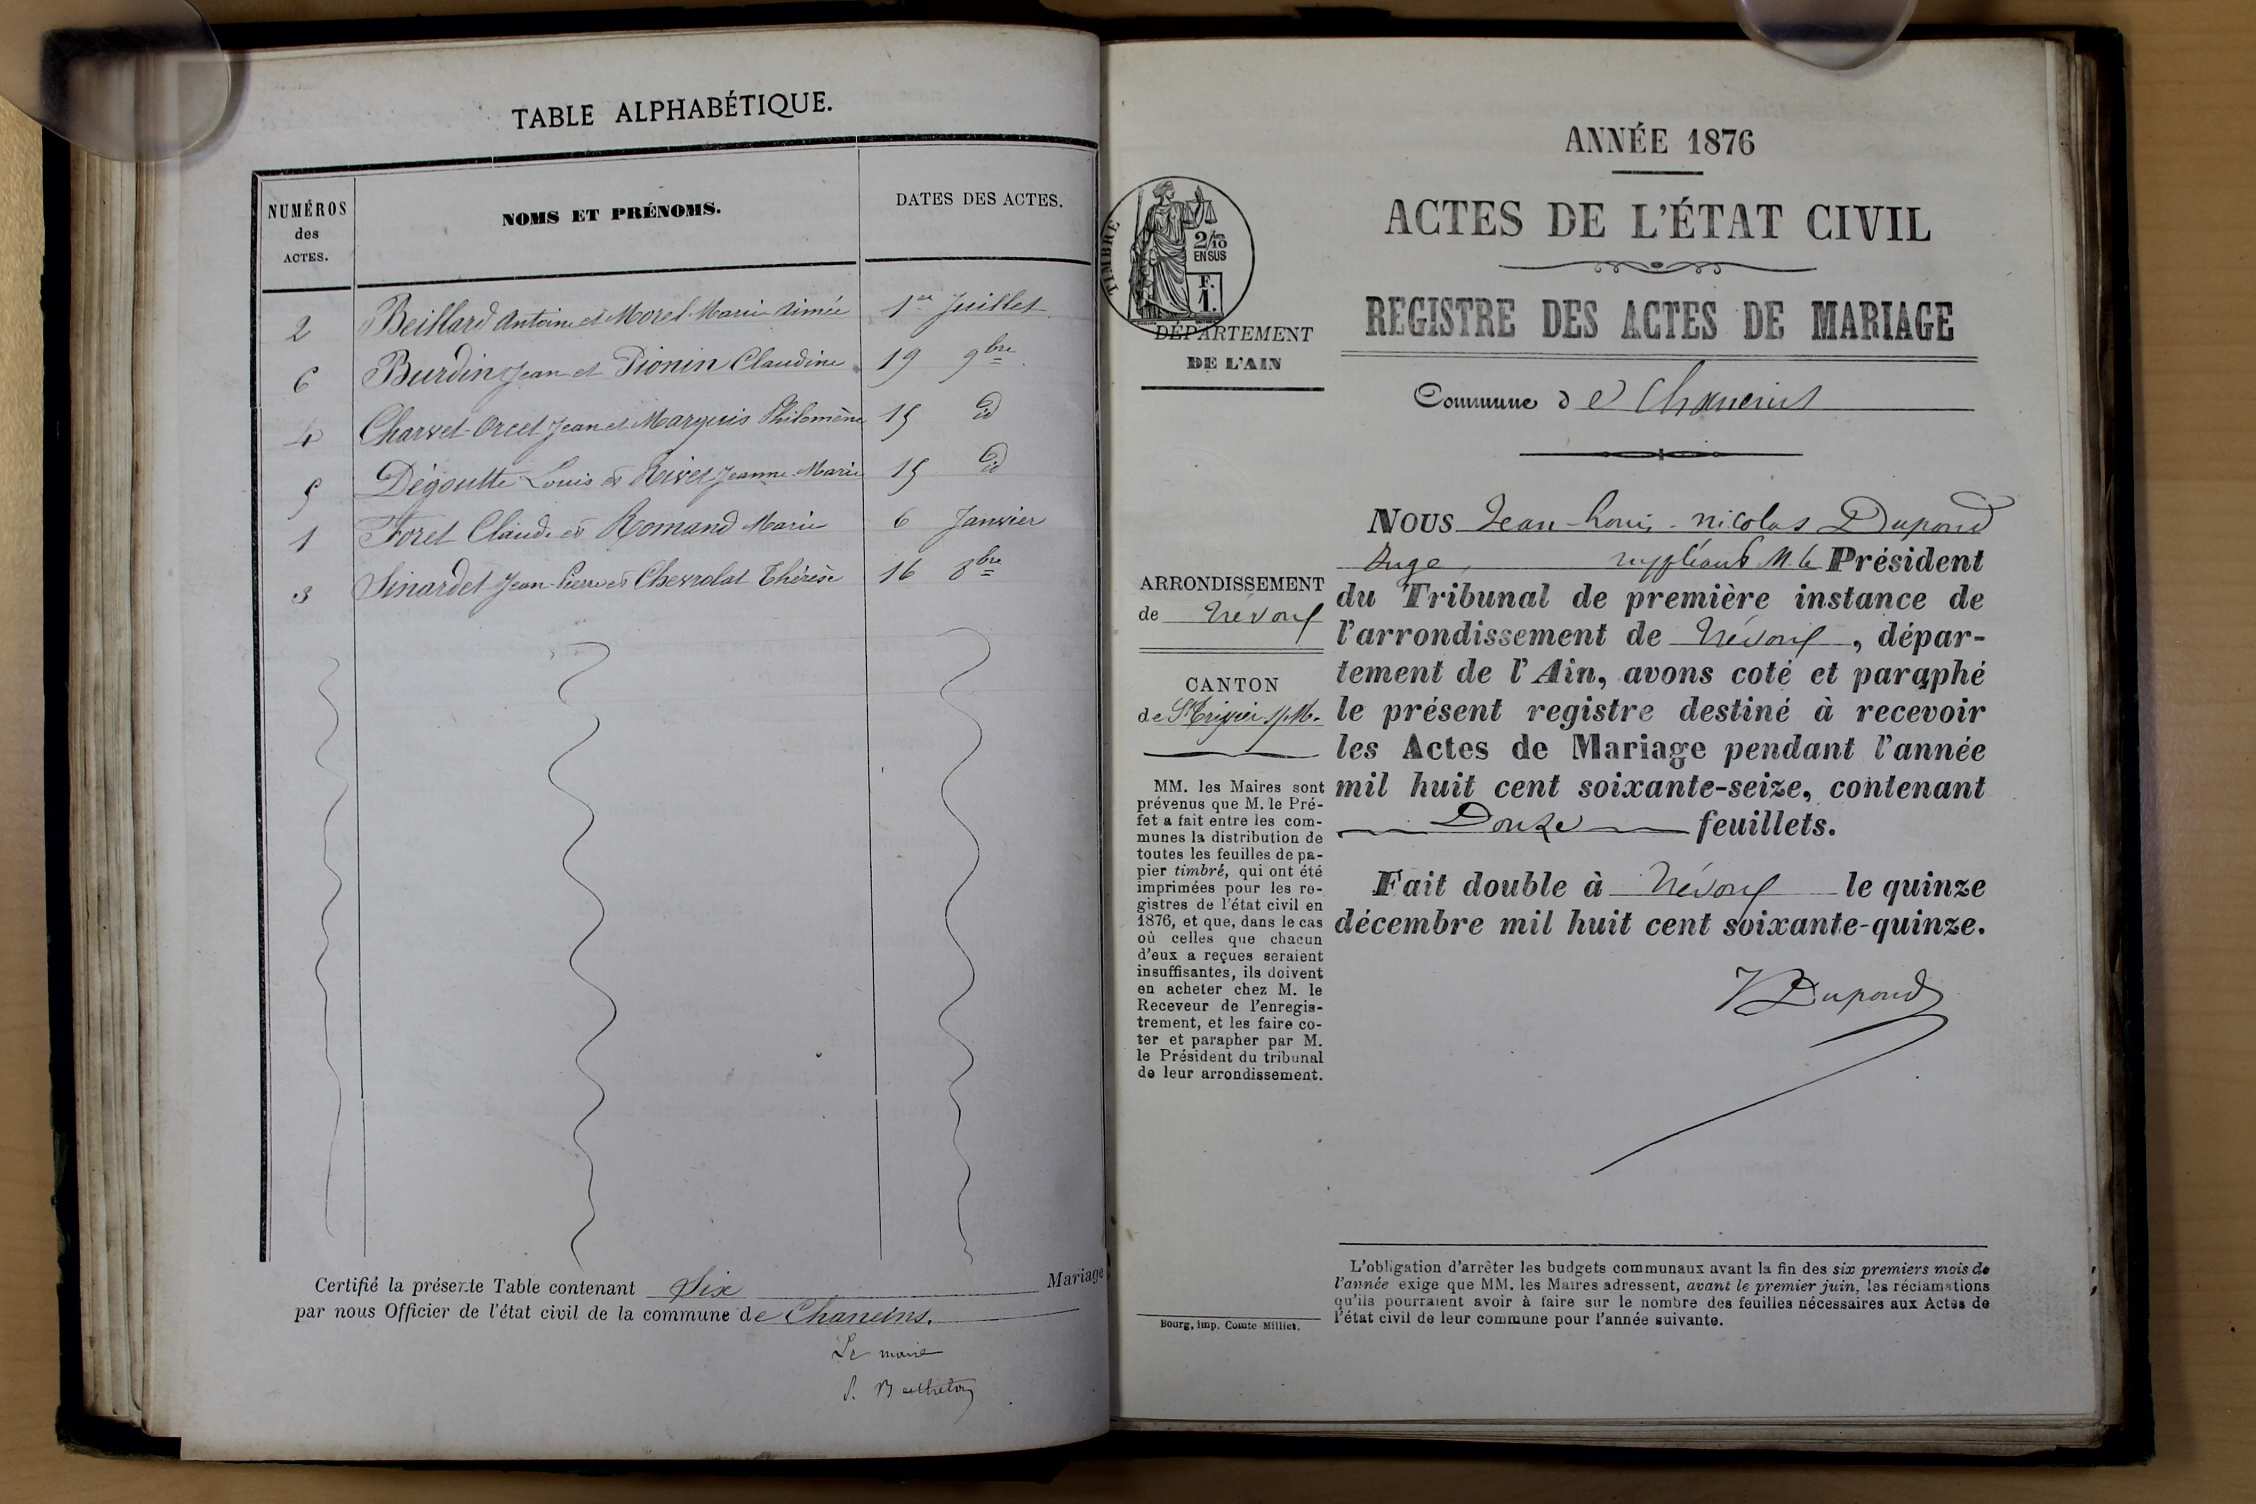 TABLE ALPHABÉTIQUE.
NUMÉROS des ACTES. NOMS ET PRÉNOMS. DATES DES ACTES.
2 Beillard Antoine et Morel Marie Aimée 1er Juillet
6 Burdin Jean et Pionin Claudine 19 9bre
4 Charvet-Orcet Jean et Marquis Philomène 15 id
5 Dégoutte Louis et Rivet Jeanne Marie 15 id
1 Foret Claude et Romand Marie 6 Janvier
3 Sinardet Jean Pierre et Chevrolat Thérèse 16 8bre
Certifié la présente Table contenant Six Mariage
par nous Officier de l'état civil de la commune de Chaneins.
Le maire
ANNÉE 1876
ACTES DE L'ÉTAT CIVIL
REGISTRE DES ACTES DE MARIAGE
TIMBRE
2/10
EN SUS
F.
1.
DÉPARTEMENT
DE L'AIN
Commune de Chaneins
ARRONDISSEMENT
de Trévoux
CANTON
de St Trivier s/M.
MM. les Maires sont
prévenus que M. le Pré-
fet a fait entre les com-
munes la distribution de
toutes les feuilles de pa-
pier timbré, qui ont été
imprimées pour les re-
gistres de l'état civil en
1876, et que, dans le cas
où celles que chacun
d'eux a reçues seraient
insuffisantes, ils doivent
en acheter chez M. le
Receveur de l'enregis-
trement, et les faire co-
ter et parapher par M.
le Président du tribunal
de leur arrondissement.
Bourg, imp. Comte-Milliet.
NOUS Jean-Louis-Nicolas Dupond
Juge, suppléant M. le Président
du Tribunal de première instance de
l'arrondissement de Trévoux, dépar-
tement de l'Ain, avons coté et paraphé
le présent registre destiné à recevoir
les Actes de Mariage pendant l'année
mil huit cent soixante-seize, contenant
Douze feuillets.
Fait double à Trévoux le quinze
décembre mil huit cent soixante-quinze.
Dupond
L'obligation d'arrêter les budgets communaux avant la fin des six premiers mois de
l'année exige que MM. les Maires adressent, avant le premier juin, les réclamations
qu'ils pourraient avoir à faire sur le nombre des feuilles nécessaires aux Actes de
l'état civil de leur commune pour l'année suivante.